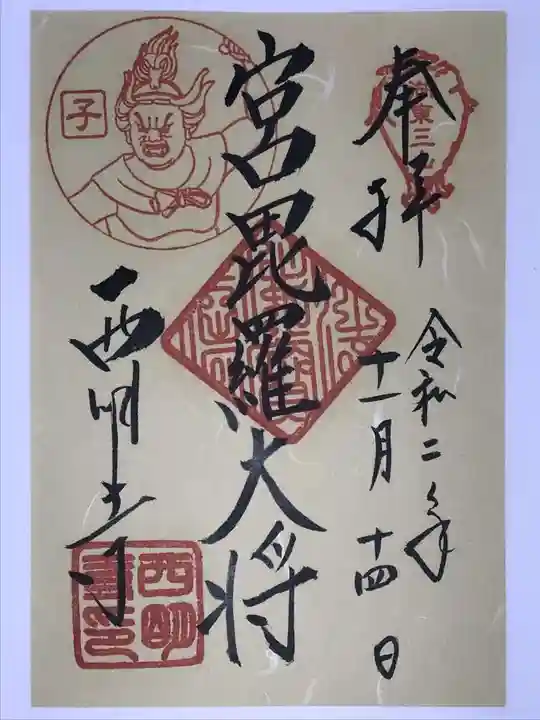 奉拝
令和二年
十一月十四日
宮毘羅大将
子
西明寺
西明